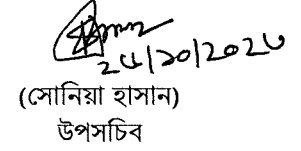 ২৫/১০/২০২৩
(সোনিয়া হাসান)
উপসচিব